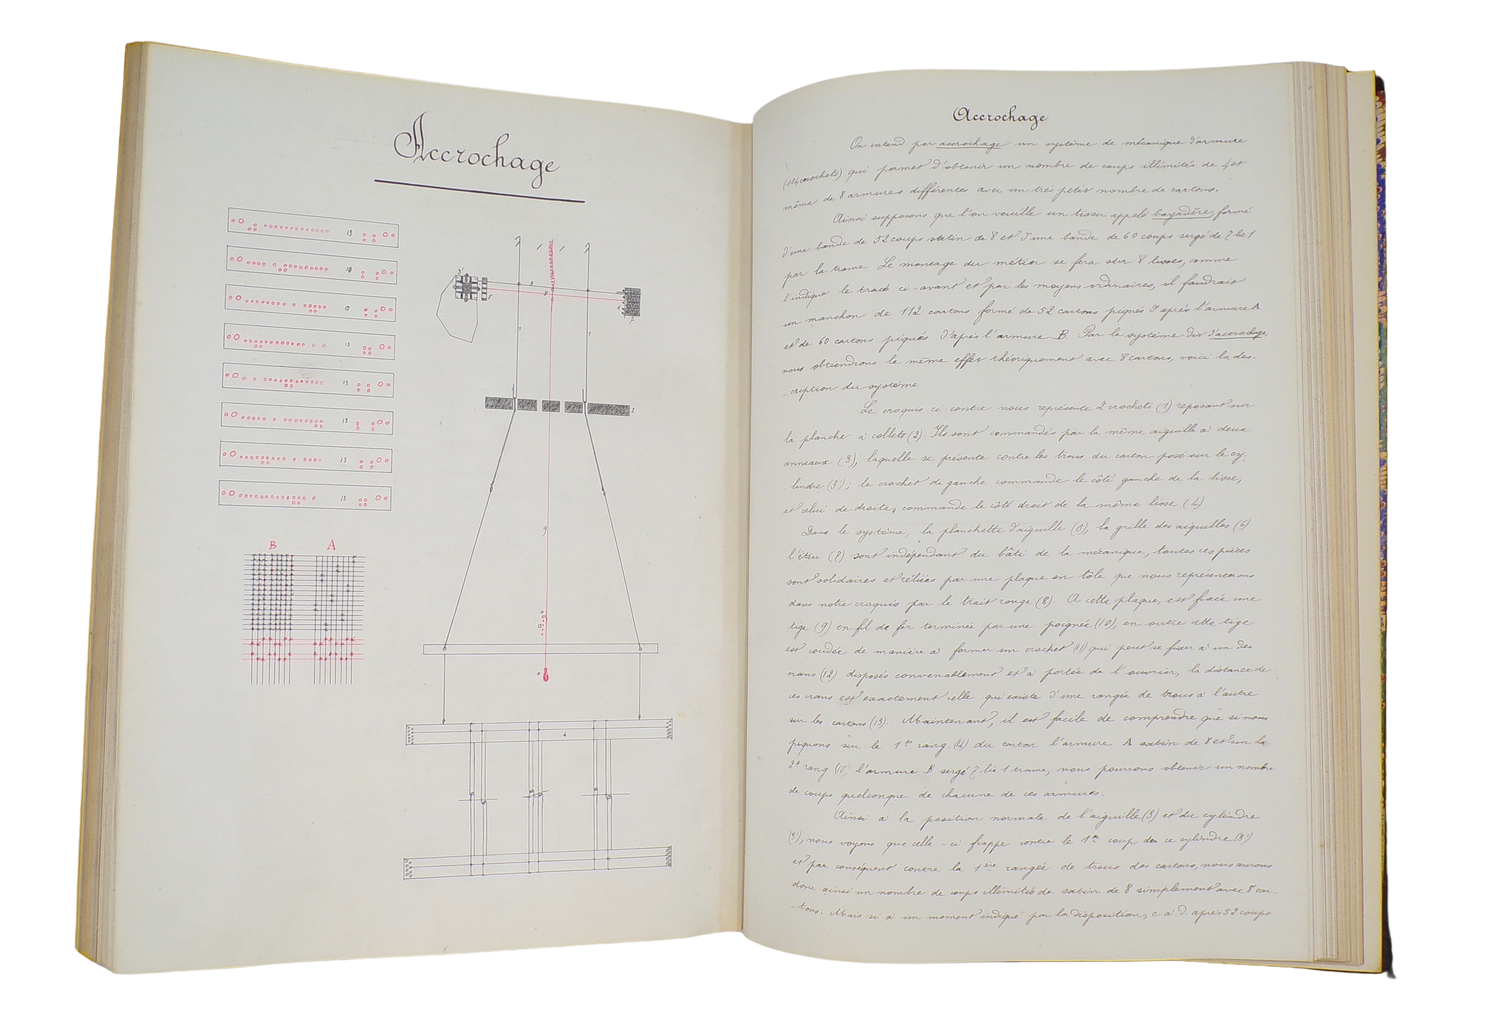 Accrochage
13
13
13
13
13
13
13
13
B A
Accrochage
On entend par accrochage un système de mécanique d'armure
(114 crochets) qui permet d'obtenir un nombre de coups illimités de 4 et
même de 8 armures différentes avec un très petit nombre de cartons.
Ainsi supposons que l'on veuille un tissu appelé bayadère, formé
d'une bande de 52 coups satin de 8 et d'une bande de 60 coups sergé de 7 lie 1
par la trame. Le montage du métier se fera sur 8 lisses, comme
l'indique le tracé ci-avant et par les moyens ordinaires, il faudrait
un manchon de 112 cartons formé de 52 cartons piqués d'après l'armure A
et de 60 cartons piqués d'après l'armure B. Par le système dit d'accrochage,
nous obtiendrons le même effet théoriquement avec 8 cartons, voici la des-
-cription du système.
Le croquis ci-contre nous représente 2 crochets (1) reposant sur
la planche à collets (2). Ils sont commandés par la même aiguille à deux
anneaux (3), laquelle se présente contre les trous du carton posé sur le cy-
lindre (3'); le crochet de gauche commande le côté gauche de la lisse,
et celui de droite, commande le côté droit de la même lisse (4)
Dans le système, la planchette d'aiguille (5), la grille des aiguilles (6)
l'étui (8) sont indépendant du bâti de la mécanique, toutes ces pièces
sont solidaires et reliées par une plaque en tôle que nous représentons
dans notre croquis par le trait rouge (8). A cette plaque, est fixée une
tige (9) en fil de fer terminée par une poignée (10), en outre cette tige
est coudée de manière à former un crochet (11) qui peut se fixer à un des
crans (12) disposés convenablement et à portée de l'ouvrier, la distance de
ces crans est exactement celle qui existe d'une rangée de trous à l'autre
sur les cartons (13). Maintenant, il est facile de comprendre que si nous
piquons sur le 1er rang (14) du carton l'armure A satin de 8 et sur le
2e rang (15) l'armure B sergé 7 lie 1 trame, nous pourrons obtenir un nombre
de coups quelconque de chacune de ces armures.
Ainsi à la position normale de l'aiguille (3) et du cylindre
(3'), nous voyons que celle-ci frappe contre le 1er coup de ce cylindre (3')
et par conséquent contre la 1ère rangée de trous des cartons, nous aurons
donc ainsi un nombre de coups illimités de satin de 8 simplement avec 8 car-
-tons. Mais si à un moment indiqué par la disposition, c à d. après 52 coups